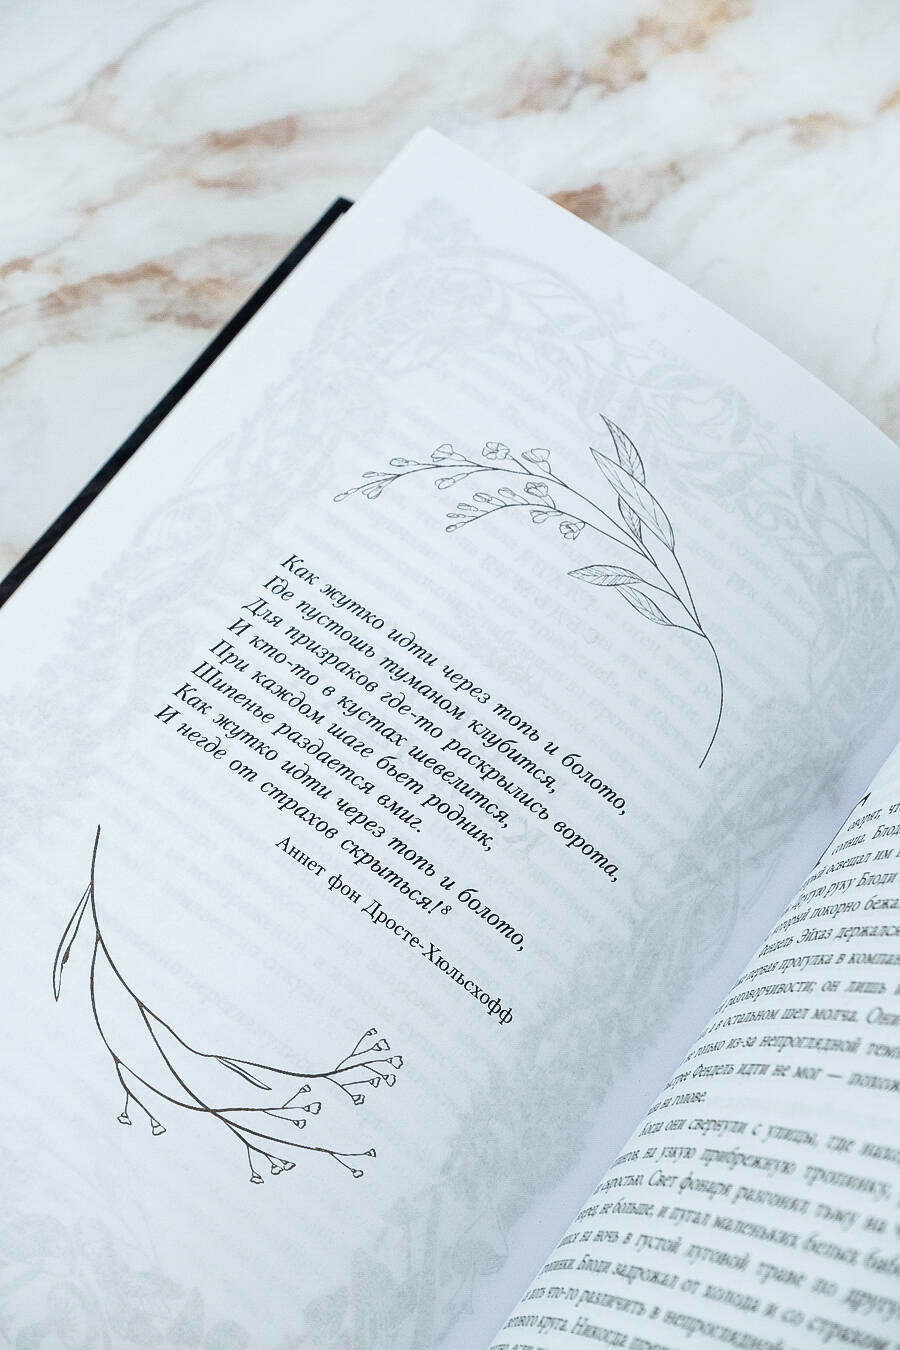 Как жутко идти через топь и болото,
Где пустошь туманом клубится,
Для призраков где-то раскрылись ворота,
И кто-то в кустах шевелится,
При каждом шаге бьет родник,
Шипенье раздается вмиг.
Как жутко идти через топь и болото,
И негде от страхов скрыться!⁸
Аннет фон Дросте-Хюльсхофф
солнца. Блоди
освещал им
другую руку Блоди
который покорно бежа
Фендель Эйхаз держался
первая прогулка в компан
разговорчивости; он лишь
а в остальном шел молча. Они
не только из-за непроглядной тем
Фендель идти не мог — похож
на голове.
Когда они свернули с улицы, где нахо
на узкую прибрежную тропинку,
сыростью. Свет фонаря разгонял тьму на
не больше, и пугал маленьких белых баб
на ночь в густой луговой траве по другу
Блоди задрожал от холода и со страхом
хоть что-то различить в непроглядной
круга. Никогда